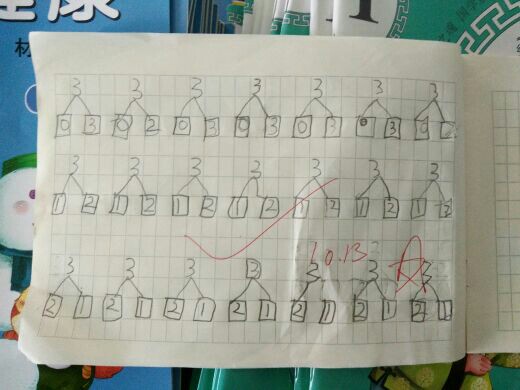 康
材
3 3 3 3 3 3 3
0 3 0 2 0 3 0 3 0 3 0 3 0
3 3 3 3 3 3 3
1 2 1 2 1 2 1 2 1 2 1 2 1 2
10.13
3 3 3 3 3 3 3
2 1 2 1 2 1 2 1 2 1 2 1 2 1